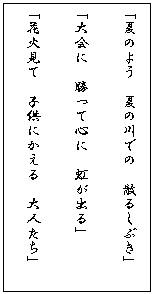 「夏のよう　夏の川での　散るしぶき」
「大会に　勝って心に　虹が出る」
「花火見て　子供にかえる　大人たち」